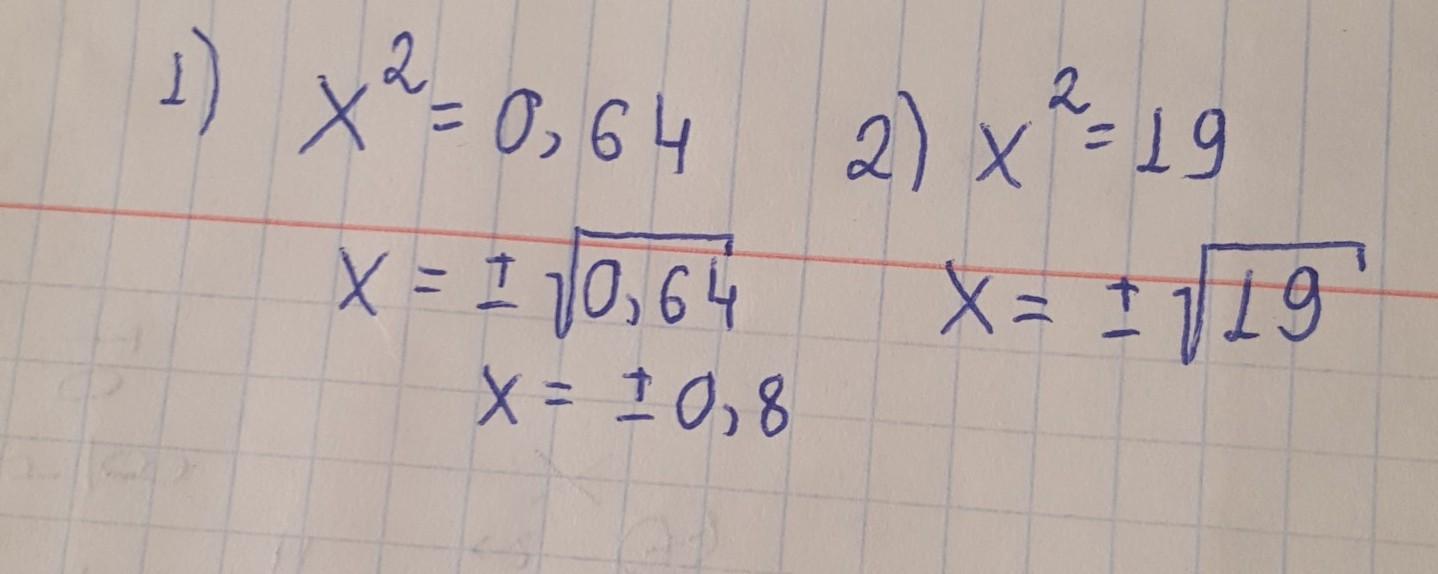 1) x² = 0,64
x = ± √0,64
x = ± 0,8
2) x² = 19
x = ± √19